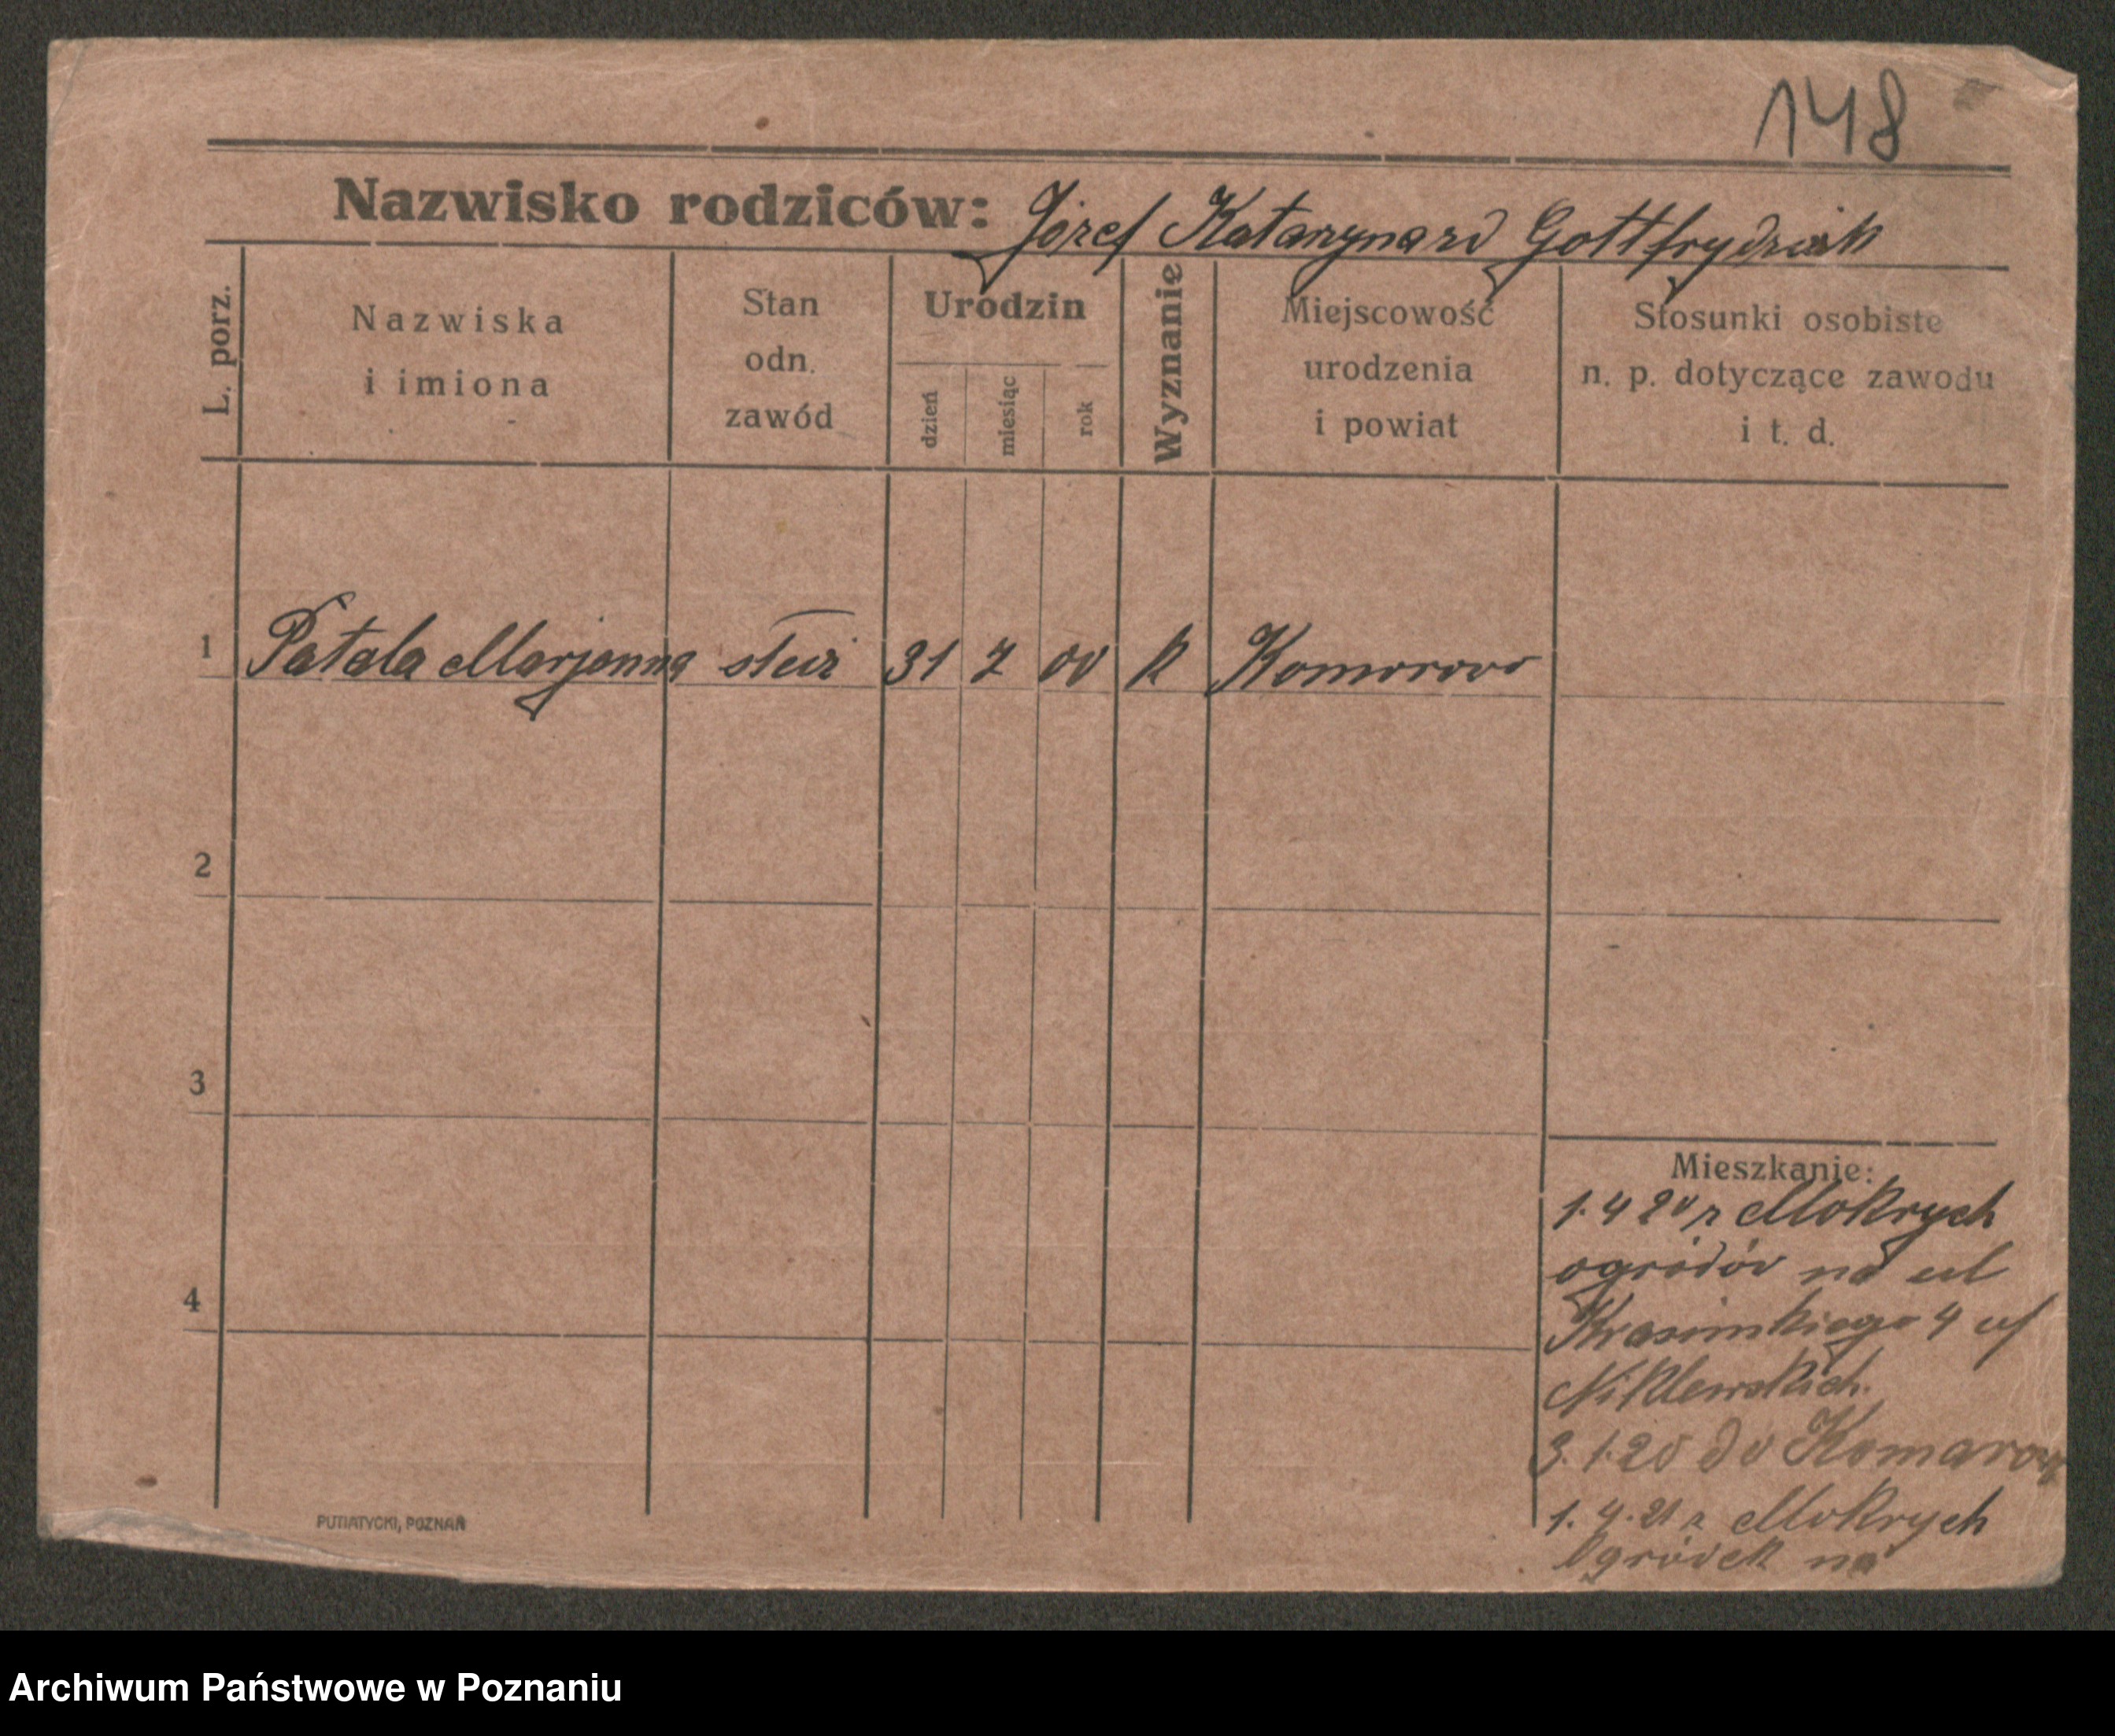 148
Nazwisko rodziców: Józef Katarzyna zd Gottfrydziak
L. porz.
Nazwiska
i imiona
Stan
odn.
zawód
Urodzin
dzień
miesiąc
rok
Wyznanie
Miejscowość
urodzenia
i powiat
Stosunki osobiste
n. p. dotyczące zawodu
i t. d.
1 Patala Marjanna służ 31 7 00 k Komorowo
2
3
4
Mieszkanie:
1.4 20 z Mokrych
ogródów na ul
4
Niklewskich.
3.1.20 do
1.4.21 z Mokrych
Ogródek na
PUTIATYCKI, POZNAŃ
Archiwum Państwowe w Poznaniu